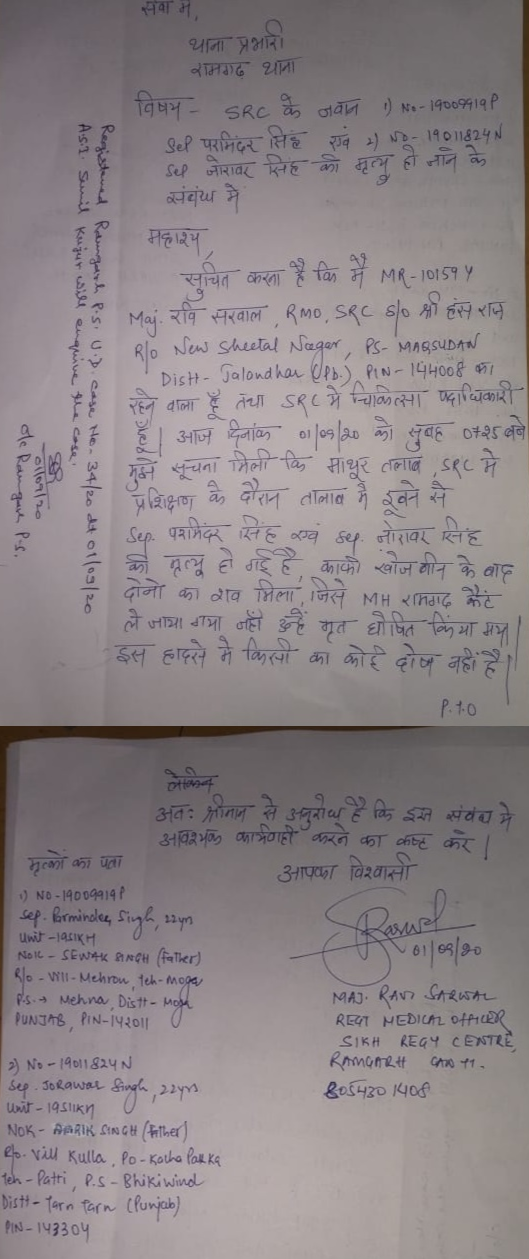 सेवा में,
थाना प्रभारी
रामगढ़ थाना
विषय - SRC के जवान 1) No-19009919P
Sep परमिंदर सिंह एवं 2) No-19011824N
Sep जोरावर सिंह की मृत्यु हो जाने के
संबंध में
महाशय,
सुचित करना है कि मैं MR-10159Y
Maj. रवि सरवाल, RMO, SRC S/o श्री हंस राज
R/o New Sheetal Nagar, PS- MAQSUDAN
Distt- Jalandhar (Pb.) PIN-144008 का
रहने वाला हूँ तथा SRC में चिकित्सा पदाधिकारी
हूँ| आज दिनांक 01/09/20 को सुबह 0725 बजे
मुझे सूचना मिली कि माथूर तालाब, SRC में
प्रशिक्षण के दौरान तालाब में डूबने से
Sep. परमिंदर सिंह एवं Sep. जोरावर सिंह
की मृत्यु हो गई है, काफी खोजबीन के बाद
दोनो का शव मिला, जिसे MH रामगढ़ कैंट
ले जाया गया जहाँ उन्हें मृत घोषित किया गया|
इस हादसे में किसी का कोई दोष नहीं है|
P.T.O
Registered Ramgarh P.S. U.D. Case No- 34/20 dt 01/09/20
A.S.I. Sunil Kujur will enquire the case.
01/09/20
O/c Ramgarh P.S.
अतः श्रीमान से अनुरोध है कि इस संबंध में
आवश्यक कार्यवाही करने का कष्ट करे|
आपका विश्वासी
01/09/20
MAJ. RAVI SARWAL
REGT MEDICAL OFFICER
SIKH REGT CENTRE,
RAMGARH CANTT.
8054301408
मृतकों का पता
1) No-19009919P
Sep. Parminder Singh, 22yrs
Unit-19SIKH
NOK- SEWAK SINGH (Father)
R/o - Vill-Mehron, Teh-Moga
P.S.→ Mehna, Distt-Moga
PUNJAB, PIN-142011
2) No-19011824N
Sep. Jorawar Singh, 22yrs
Unit-19SIKH
NOK- SINGH (Father)
R/o. Vill Kulla, PO-Kacha Pakka
Teh-Patti, P.S-Bhikiwind
Distt-Tarn Tarn (Punjab)
PIN-143304